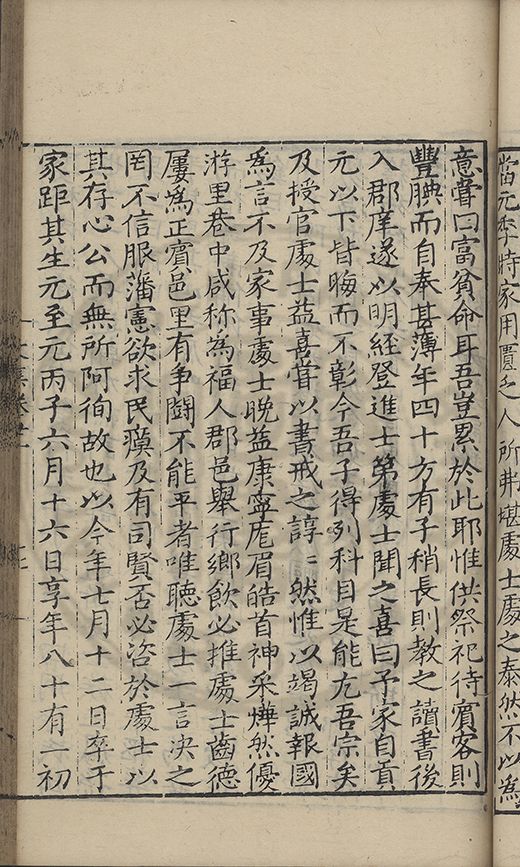 當元季時家用匱乏人所弗堪處士處之泰然不以為
意嘗曰富貧命耳吾豈累於此耶惟供祭祀待賓客則
豐腆而自奉甚薄年四十方有子稍長則教之讀書後
入郡庠遂以明經登進士第處士聞之喜曰予家自貢
元以下皆晦而不彰今吾子得列科目是能亢吾宗矣
及授官處士益喜嘗以書戒之諄〻然惟以竭誠報國
為言不及家事處士晚益康寧厖眉皓首神采燁然優
游里巷中咸称為福人郡邑舉行鄉飲必推處士齒德
屢為正賓邑里有爭鬪不能平者唯聽處士一言決之
罔不信服藩憲欲求民瘼及有司賢否必咨於處士以
其存心公而無所阿徇故也以今年七月十二日卒于
家距其生元至元丙子六月十六日享年八十有一初